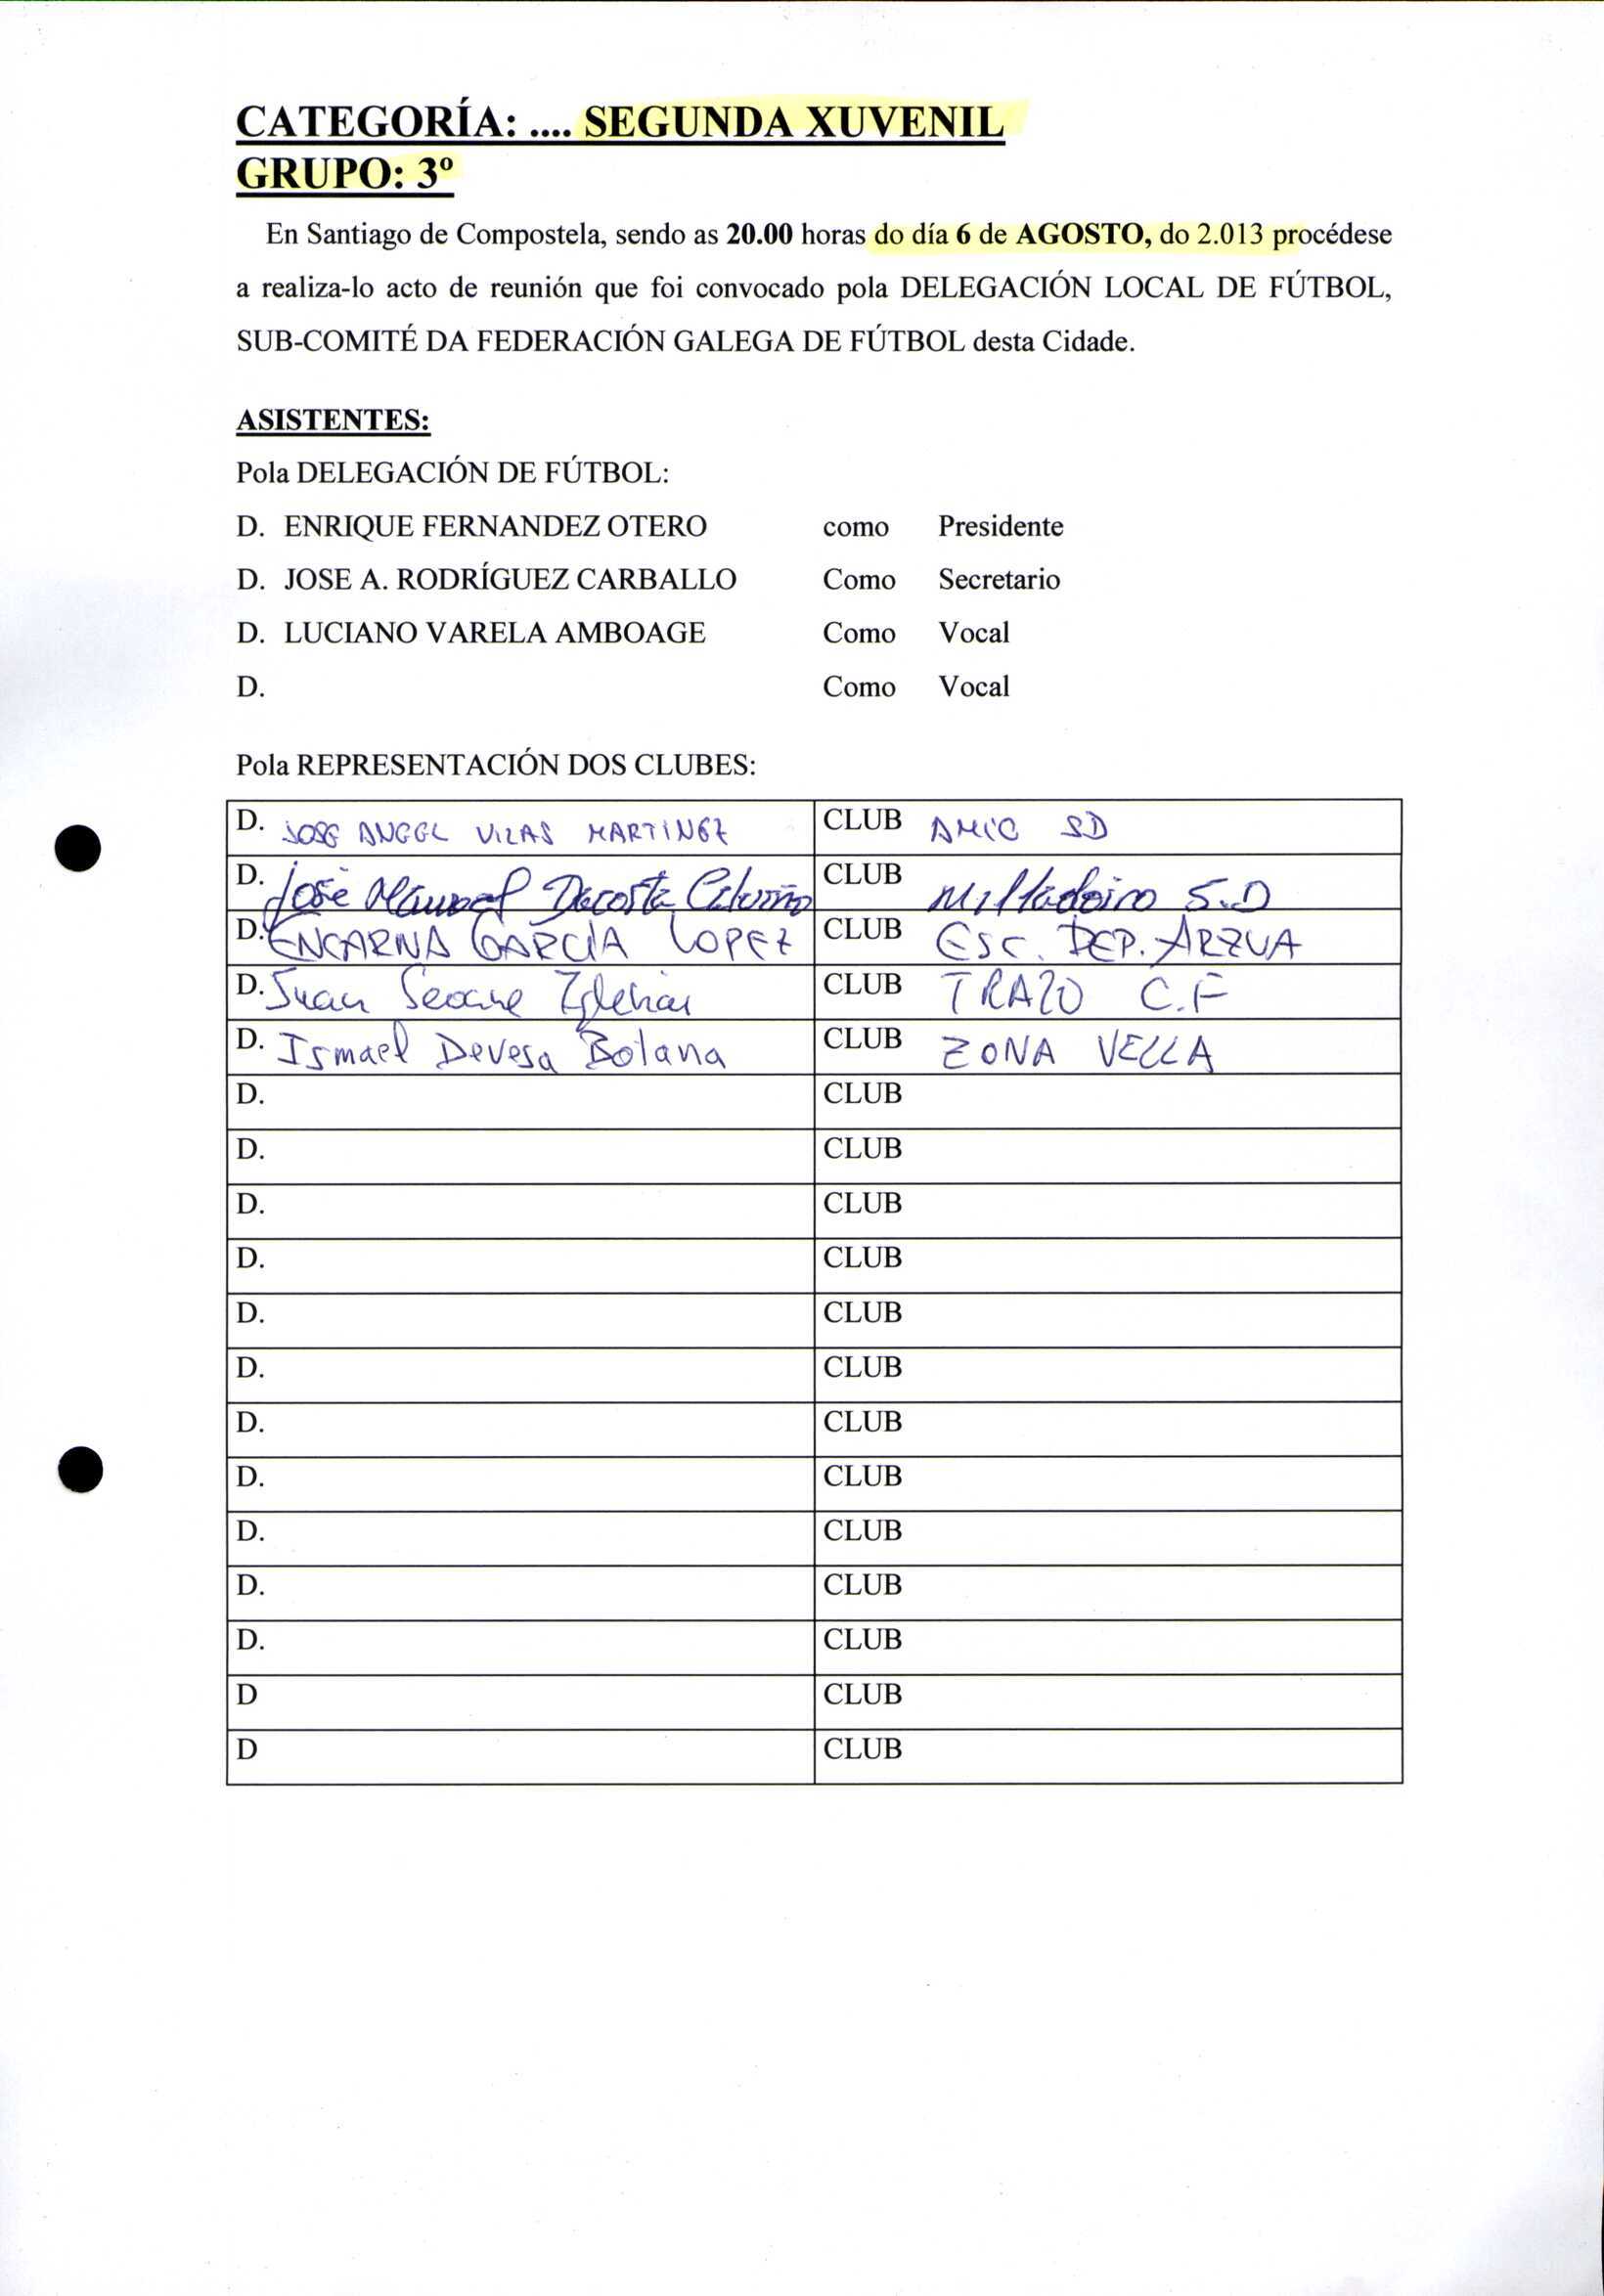 CATEGORÍA: .... SEGUNDA XUVENIL
GRUPO: 3º
En Santiago de Compostela, sendo as 20.00 horas do día 6 de AGOSTO, do 2.013 procédese
a realiza-lo acto de reunión que foi convocado pola DELEGACIÓN LOCAL DE FÚTBOL,
SUB-COMITÉ DA FEDERACIÓN GALEGA DE FÚTBOL desta Cidade.
ASISTENTES:
Pola DELEGACIÓN DE FÚTBOL:
D. ENRIQUE FERNANDEZ OTERO como Presidente
D. JOSE A. RODRÍGUEZ CARBALLO Como Secretario
D. LUCIANO VARELA AMBOAGE Como Vocal
D. Como Vocal
Pola REPRESENTACIÓN DOS CLUBES:
D. JOSE ANGEL VILAS MARTINEZ CLUB AMIC SD
D. José Manuel Dacosta CLUB Milladoiro S.D
D. ENCARNA GARCÍA LOPEZ CLUB ESC. DEP. ARZUA
D. Juan Seoane Iglesias CLUB TRAZO C.F
D. Ismael Devesa Bolana CLUB ZONA VELLA
D. CLUB
D. CLUB
D. CLUB
D. CLUB
D. CLUB
D. CLUB
D. CLUB
D. CLUB
D. CLUB
D. CLUB
D. CLUB
D CLUB
D CLUB